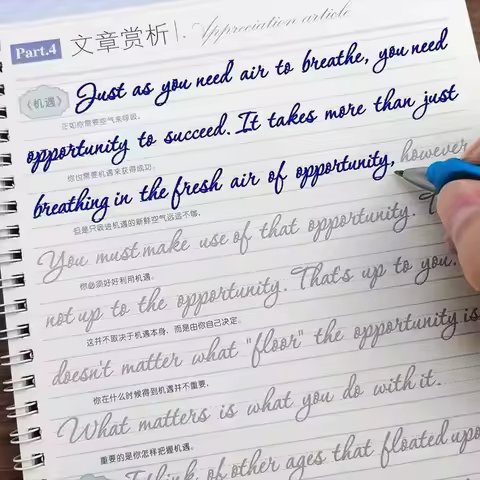 Part.4 文章赏析 Appreciation article
《机遇》 Just as you need air to breathe, you need
正如你需要空气来呼吸,
opportunity to succeed. It takes more than just
你也需要机遇来获得成功。
breathing in the fresh air of opportunity, however
但是只吸进机遇的新鲜空气远远不够,
You must make use of that opportunity.
你必须好好利用机遇。
not up to the opportunity. That's up to you.
这并不取决于机遇本身, 而是由你自己决定。
doesn't matter what "floor" the opportunity is
你在什么时候得到机遇并不重要,
What matters is what you do with it.
重要的是你怎样把握机遇。
I think of other ages that floated upo